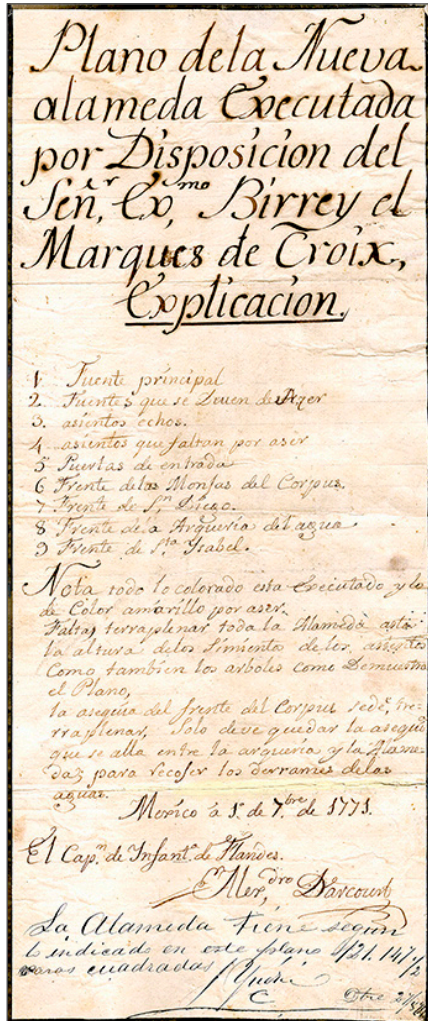 Plano dela Nueva
alameda Executada
por Disposicion del
Señ,r Ex,mo Birrey el
Marques de Croix,
Explicacion,
1 Fuente principal
2. Fuentes que se Deven de Azer
3. asientos echos.
4 asientos que faltan por aser
5 Puertas de entrada
6 Frente delas Monjas del Corpus.
7 Frente de S,n Diego.
8 Frente dela Arqueria del agua
9 Frente de S,ta Ysabel.
Nota todo lo colorado esta Executado y lo
de Color amarillo por aser.
Faltan terraplenar toda la Alameda asta
la altura delos Simientos delos asientos
Como tambien los arboles como Demuestra
el Plano,
la asequia del frente del Corpus sede,
rraplenar, Solo deve quedar la asequia
que se alla entre la arqueria y la Alame-
da, para recoser los derrames delas
aguas.
Mexico á 1º de 7,bre de 1771.
El Cap,n de Infant,a de Flandes.
Alex,dro Darcourt
La Alameda tiene segun
lo indicado en este plano 121.147 1/2
varas cuadradas